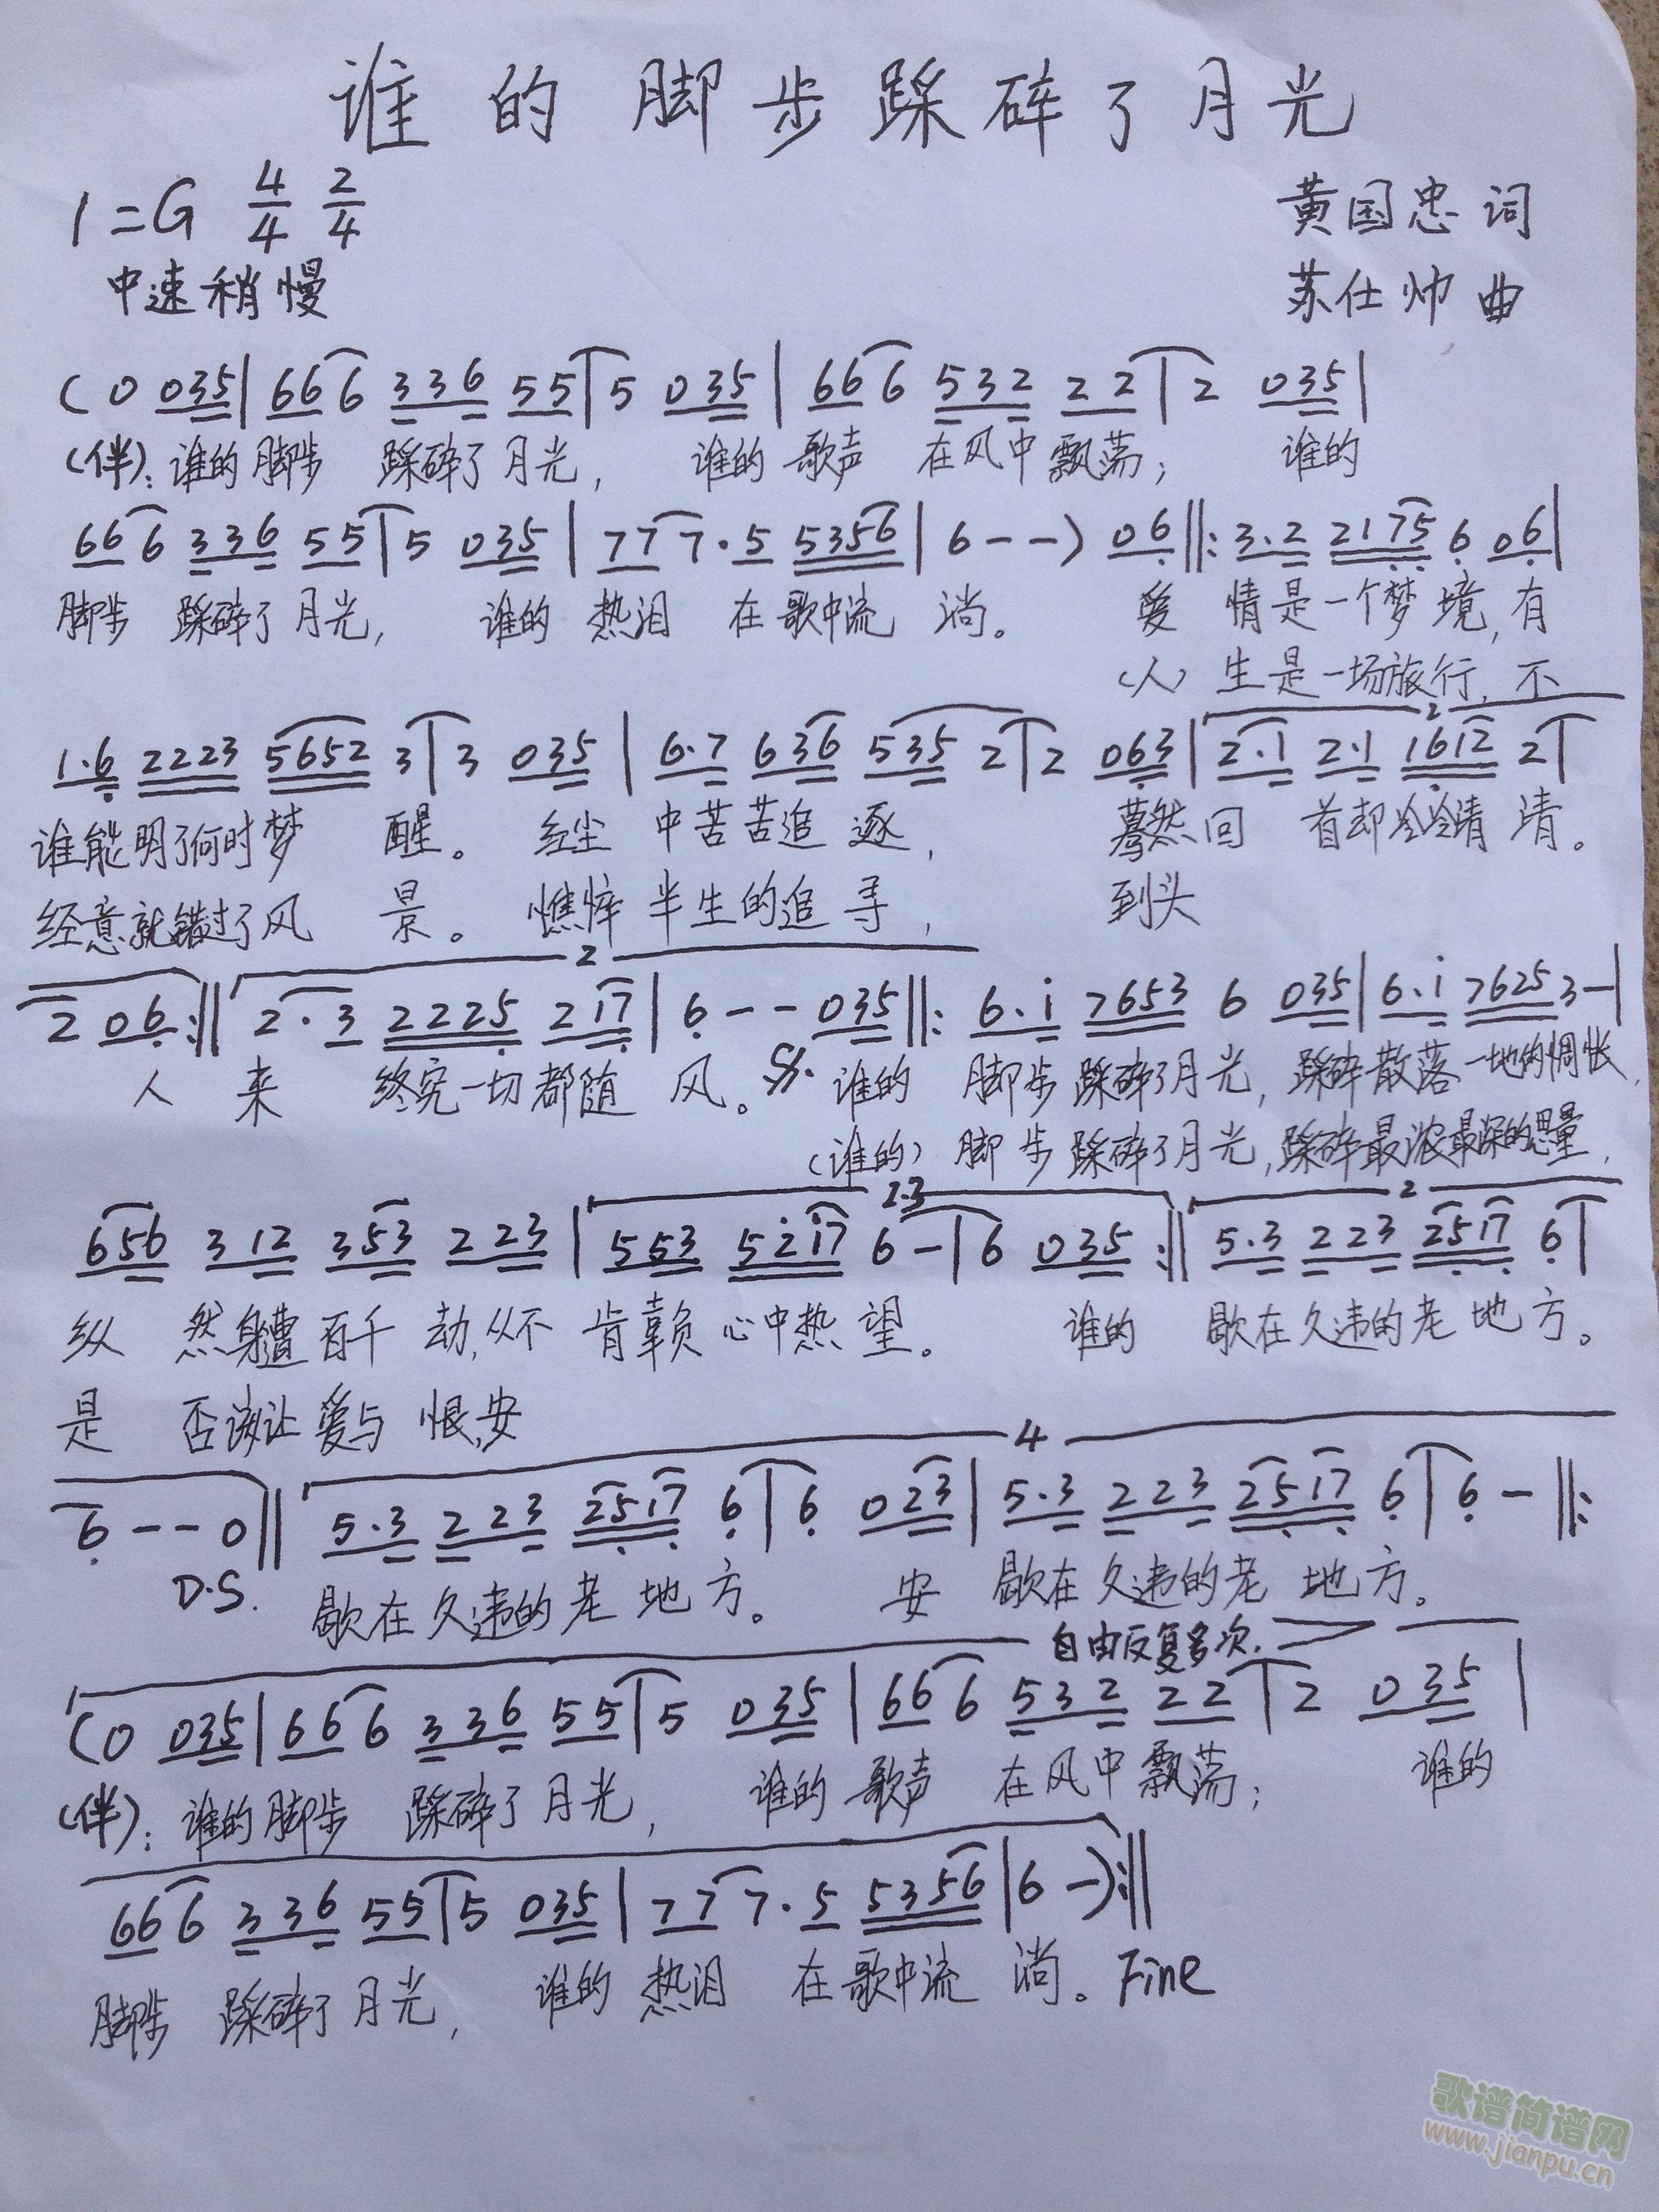 谁的脚步踩碎了月光
1=G 4/4 2/4
黄国忠 词
中速稍慢
苏仕帅 曲
(0 035|66 6 336 55|5 035|66 6 532 22|2 035|
(伴):谁的脚步 踩碎了月光, 谁的歌声 在风中飘荡; 谁的
66 6 336 55|5 035|77 7·5 5356|6--) 06||:3·2 2175 6 06|
脚步 踩碎了月光, 谁的 热泪 在歌中流 淌。 爱 情是一个梦境,有
(人) 生是一场旅行,不
1·6 2223 5652 3|3 035|6·7 636 535 2|2 063|2·1 2·1 1612 2|
谁能明了何时梦 醒。 红尘 中苦苦追 逐, 蓦然回 首却冷冷清 清。
经意就错过了风 景。 憔悴 半生的追 寻, 到头
2 06:||2·3 2225 217|6--035||:6·i 7653 6 035|6·i 7625 3-|
人 来 终究一切都随 风。 谁的 脚步踩碎了月光, 踩碎散落一地的惆怅,
(谁的) 脚步踩碎了月光,踩碎最浓最深的思量,
656 312 353 223|553 52i7 6-|6 035:||5·3 223 2517 6|
纵 然身遭百千 劫,从不 肯辜负 心中热 望。 谁的 歇在久违的老 地方。
是 否该让爱与 恨,安
6--0|| 5·3 223 2517 6|6 023|5·3 223 2517 6|6-||:
D.S. 歇在久违的老 地方。 安 歇在久违的老 地方。
自由反复多次.
(0 035|66 6 336 55|5 035|66 6 532 22|2 035|
(伴):谁的脚步 踩碎了月光, 谁的歌声 在风中飘荡; 谁的
66 6 336 55|5 035|77 7·5 5356|6-):||
脚步 踩碎了月光, 谁的 热泪 在歌中流 淌。Fine
歌谱简谱网
www.jianpu.cn